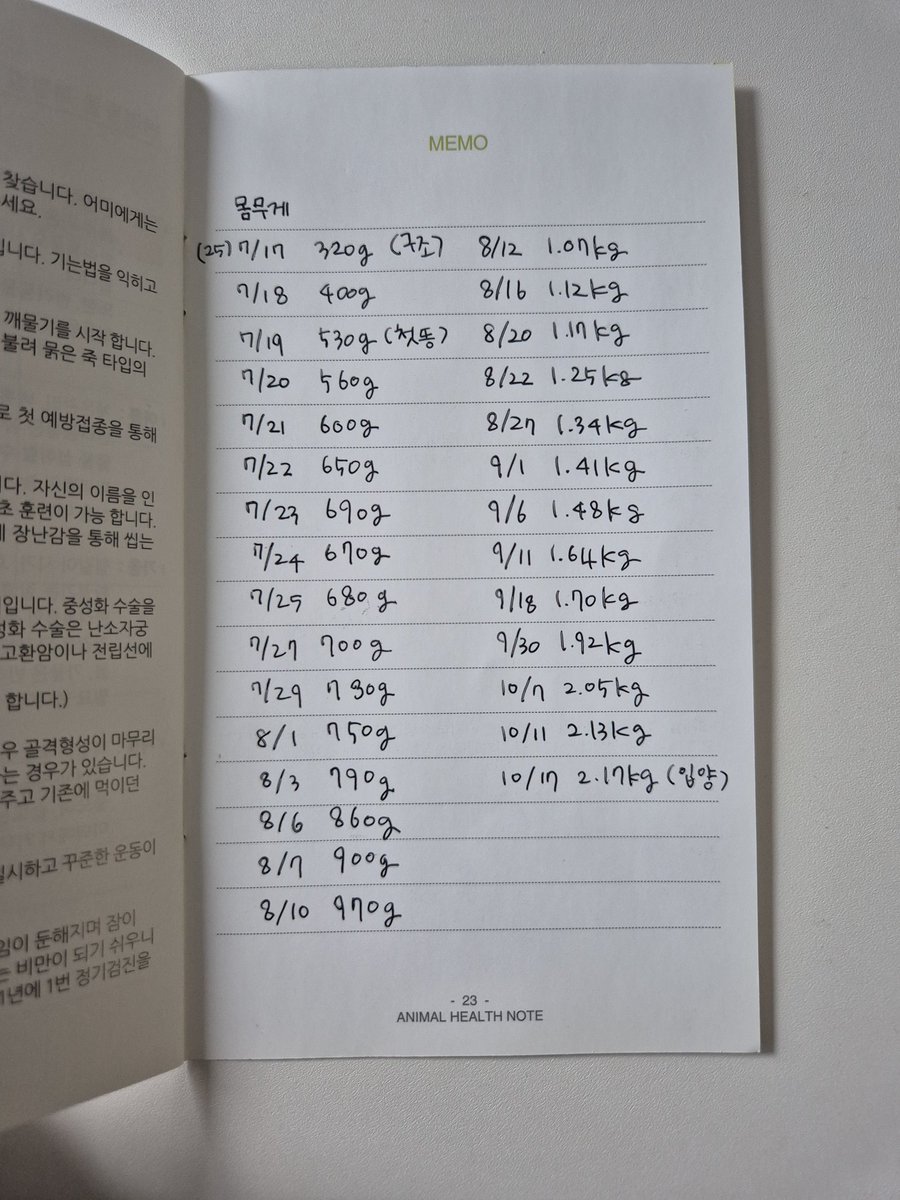 찾습니다. 어미에게는
세요.
입니다. 기는법을 익히고
깨물기를 시작 합니다.
불려 묽은 죽 타입의
로 첫 예방접종을 통해
니다. 자신의 이름을 인
초 훈련이 가능 합니다.
장난감을 통해 씹는
입니다. 중성화 수술을
성화 수술은 난소자궁
고환암이나 전립선에
합니다.)
우 골격형성이 마무리
는 경우가 있습니다.
주고 기존에 먹이던
실시하고 꾸준한 운동이
임이 둔해지며 잠이
는 비만이 되기 쉬우니
1년에 1번 정기검진을
MEMO
몸무게
(25) 7/17 320g (구조)
7/18 400g
7/19 530g (첫똥)
7/20 560g
7/21 600g
7/22 650g
7/23 690g
7/24 670g
7/25 680g
7/27 700g
7/29 730g
8/1 750g
8/3 790g
8/6 860g
8/7 900g
8/10 970g
8/12 1.07kg
8/16 1.12kg
8/20 1.17kg
8/22 1.25kg
8/27 1.34kg
9/1 1.41kg
9/6 1.48kg
9/11 1.64kg
9/18 1.70kg
9/30 1.92kg
10/7 2.05kg
10/11 2.13kg
10/17 2.17kg (입양)
- 23 -
ANIMAL HEALTH NOTE